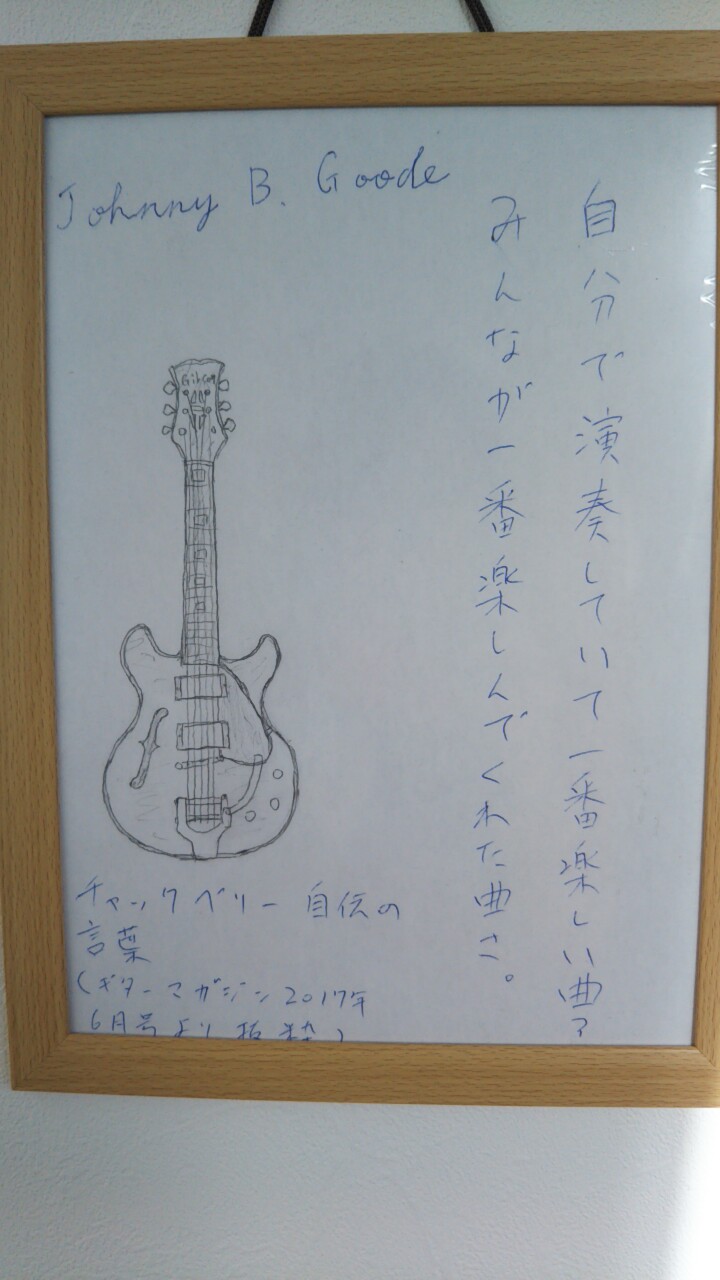 Johnny B. Goode
自分で演奏していて一番楽しい曲?
みんなが一番楽しんでくれた曲さ。
Gibson
チャックベリー自伝の
言葉
(ギターマガジン2017年
6月号より抜粋)